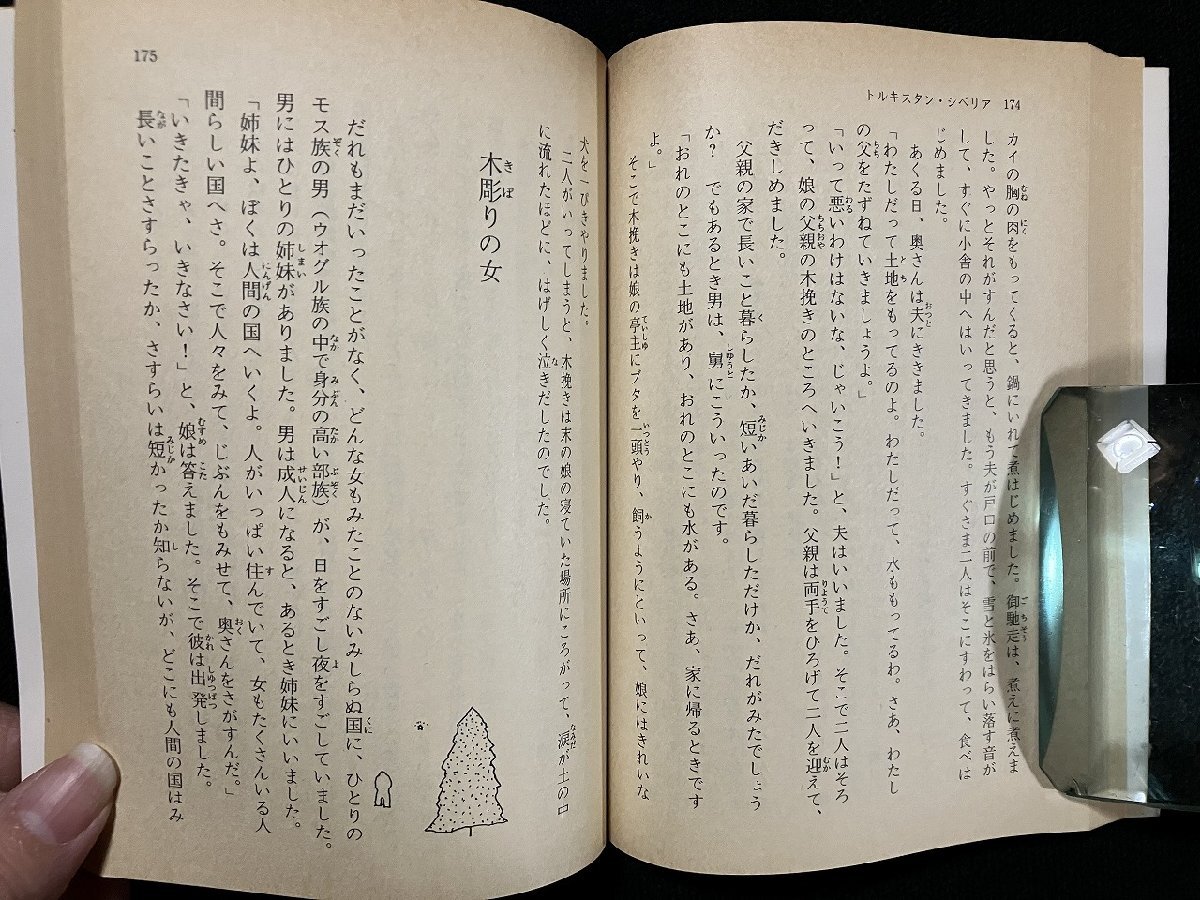 トルキスタン・シベリア 174
カイの胸の肉をもってくると、鍋にいれて煮はじめました。御馳走は、煮えに煮えま
した。やっとそれがすんだと思うと、もう夫が戸口の前で、雪と氷をはらい落す音が
して、すぐに小舎の中へはいってきました。すぐさま二人はそこにすわって、食べは
じめました。
あくる日、奥さんは夫にききました。
「わたしだって土地をもってるのよ。わたしだって、水ももってるわ。さあ、わたし
の父をたずねていきましょうよ。」
「いって悪いわけはないな、じゃいこう！」と、夫はいいました。そこで二人はそろ
って、娘の父親の木挽きのところへいきました。父親は両手をひろげて二人を迎えて、
だきしめました。
父親の家で長いこと暮らしたか、短いあいだ暮らしただけか、だれがみたでしょう
か？　でもあるとき男は、舅にこういったのです。
「おれのとこにも土地があり、おれのとこにも水がある。さあ、家に帰るときです
よ。」
そこで木挽きは娘の亭主にブタを一頭やり、飼うようにといって、娘にはきれいな
犬を一ぴきやりました。
二人がいってしまうと、木挽きは末の娘の寝ていた場所にころがって、涙が土の口
に流れたほどに、はげしく泣きだしたのでした。
木彫りの女
だれもまだいったことがなく、どんな女もみたことのないみしらぬ国に、ひとりの
モス族の男（ウオグル族の中で身分の高い部族）が、日をすごし夜をすごしていました。
男にはひとりの姉妹がありました。男は成人になると、あるとき姉妹にいいました。
「姉妹よ、ぼくは人間の国へいくよ。人がいっぱい住んでいて、女もたくさんいる人
間らしい国へさ。そこで人々をみて、じぶんをもみせて、奥さんをさがすんだ。」
「いきたきゃ、いきなさい！」と、娘は答えました。そこで彼は出発しました。
長いことさすらったか、さすらいは短かったか知らないが、どこにも人間の国はみ
175